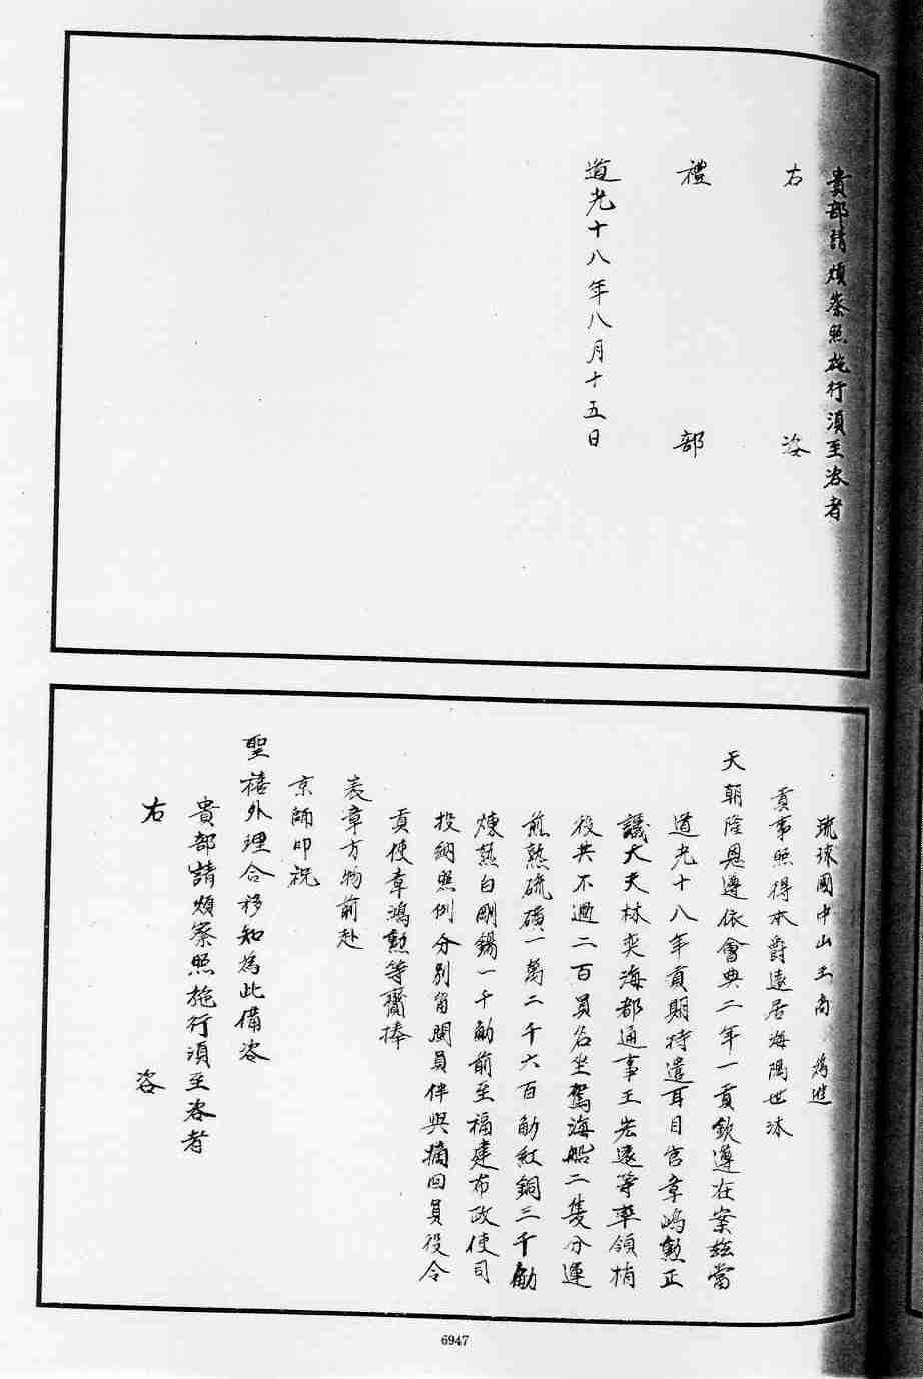 貴部請煩察照施行須至咨者
右咨
禮部
道光十八年八月十五日
琉球國中山王尚 為進
貢事照得本爵遠居海隅世沐
天朝隆恩遵依會典二年一貢欽遵在案茲當
道光十八年貢期特遣耳目官章鴻勲正
議大夫林奕海都通事王宏遠等率領梢
役共不過二百員名坐駕海船二隻分運
煎熟硫磺一萬二千六百觔紅銅三千觔
煉熟白剛錫一千觔前至福建布政使司
投納照例分別留閩員伴與摘回員役令
貢使章鴻勲等齎捧
表章方物前赴
京師叩祝
聖禧外理合移知為此備咨
貴部請煩察照施行須至咨者
右咨
6947